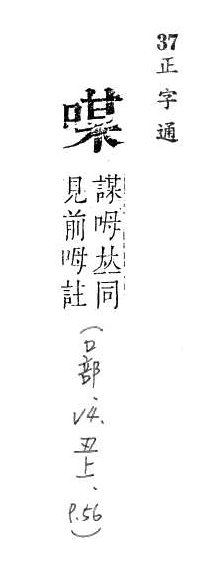 37正字通
㖼
謀呣𠀤同
見前呣註
(口部、V4.丑上、P.56)